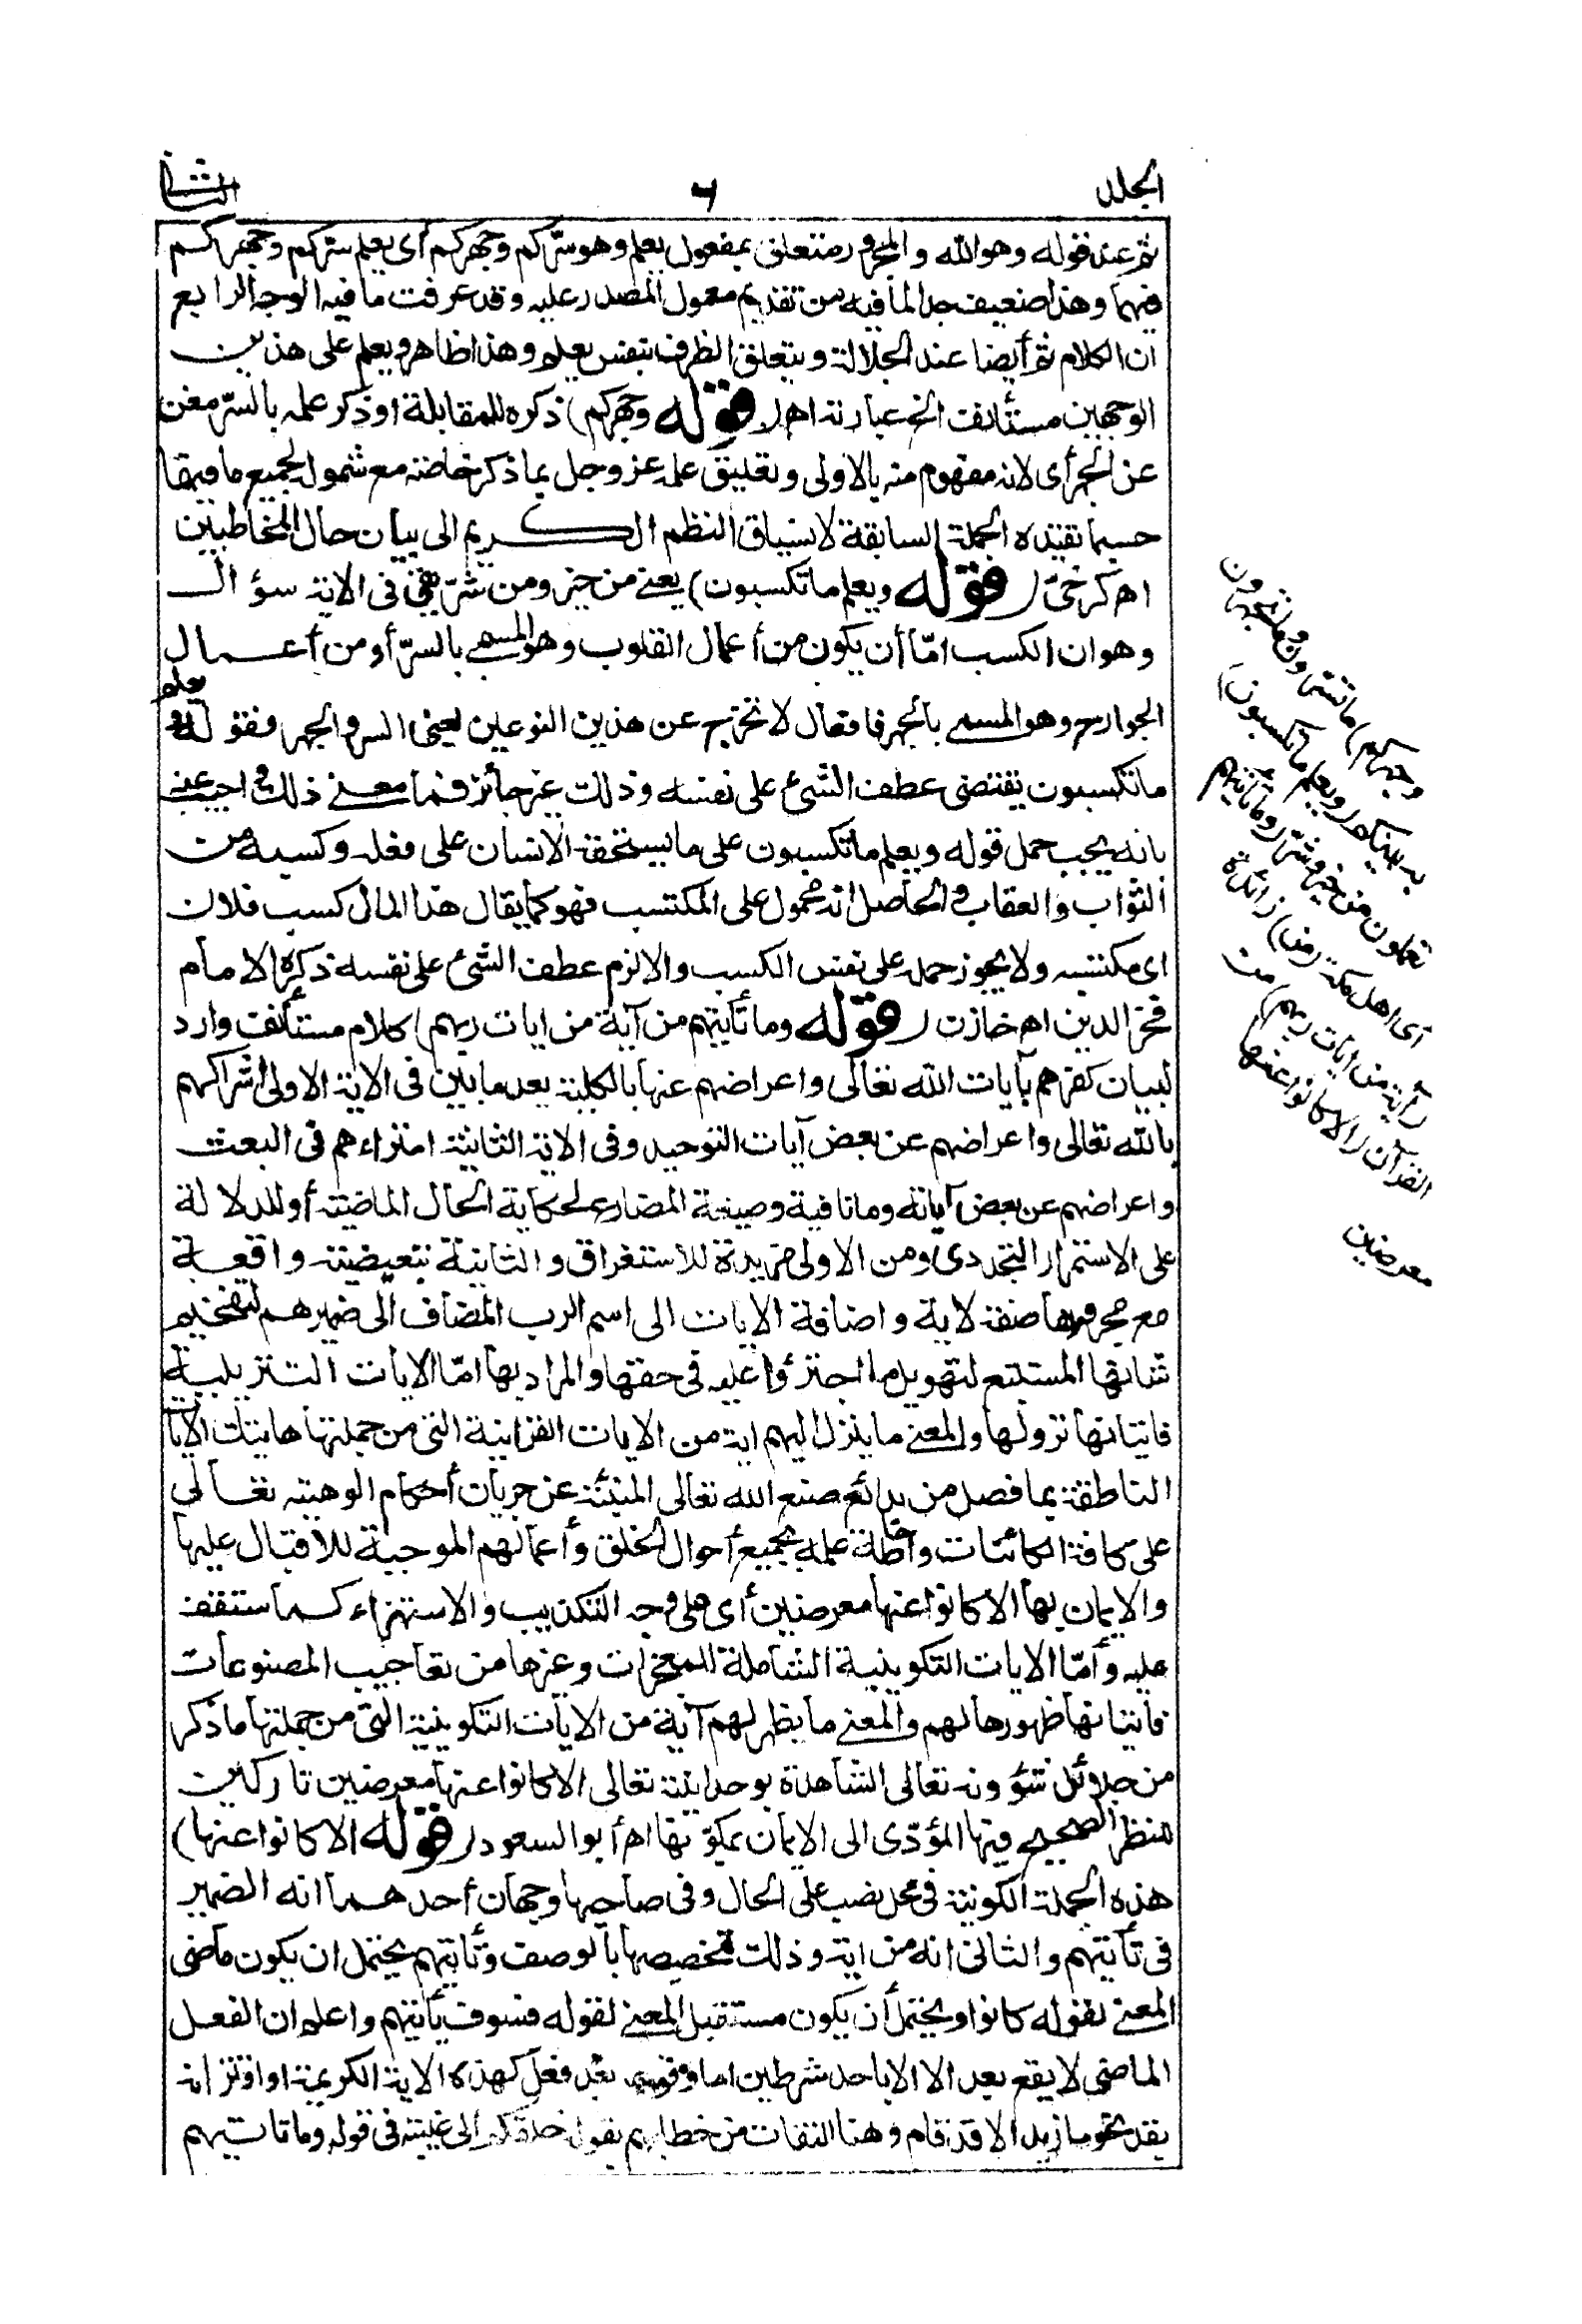 الجلد ٦ الثانى
تم عند قوله وهو الله والمجرور متعلق بمفعول يعلم وهو سركم وجهركم أى يعلم سركم وجهركم
فيهما وهذا ضعيف جدا لما فيه من تقديم معمول المصدر عليه وقد عرفت ما فيه الوجه الرابع
ان الكلام تم أيضا عند الجلالة ويتعلق الظرف بنفس يعلم وهذا ظاهر ويعلم على هذين
الوجهين مستأنف الخ عبارته اه (قوله وجهركم) ذكره للمقابلة اوذكر علمه بالسر مغن
عن الجهر أى لانه مفهوم منه بالاولى وتعليق علمه عز وجل بما ذكر خاصة مع شموله لجميع ما فيهما
حسبما تفيده الجملة السابقة لانسياق النظم الكريم الى بيان حال المخاطبين
اه كرخى (قوله ويعلم ما تكسبون) يعنى من خير ومن شر بقى فى الاية سؤال
وهو ان الكسب امّا أن يكون من أعمال القلوب وهو المسمى بالسرّ أو من أعمال
الجوارح وهو المسمى بالجهر فافعال لا تخرج عن هذين النوعين يعنى السر والجهر فقوله ويعلم
ما تكسبون يقتضى عطف الشئ على نفسه وذلك غير جائز فما معنى ذلك واجيب عنه
بانه يجب حمل قوله ويعلم ما تكسبون على ما يستحقه الانسان على فعله وكسبه من
الثواب والعقاب والحاصل انه محمول على المكتسب فهو كما يقال هذا المال كسب فلان
اى مكتسبه ولا يجوز حمله على نفس الكسب والا لزم عطف الشئ على نفسه ذكره الامام
فخر الدين اه خازن (قوله وما تأتيهم من آية من ايات ربهم) كلام مستأنف وارد
لبيان كفرهم بآيات الله تعالى واعراضهم عنها بالكلية بعد ما بين فى الاية الاولى اشراكهم
بالله تعالى واعراضهم عن بعض آيات التوحيد وفى الاية الثانية امتراءهم فى البعث
واعراضهم عن بعض آياته وما نافية وصيغة المضارع لحكاية الحال الماضية أو للدلالة
على الاستمرار التجددى ومن الاولى مزيدة للاستغراق والثانية تبعيضية واقعة
مع مجرورها صفة لاية واضافة الايات الى اسم الرب المضاف الى ضميرهم لتفخيم
شانها المستتبع لتهويل ما اجترؤا عليه فى حقها والمراد بها امّا الايات التنزيلية
فاتيانها نزولها والمعنى ما ينزل اليهم اية من الايات القرانية التى من جملتها هاتيك الايات
الناطقة بما فصل من بدائع صنع الله تعالى المنبئة عن جريان أحكام الوهيته تعالى
على كافة الكائنات واحاطة علمه بجميع أحوال الخلق وأعمالهم الموجبة للاقبال عليها
والايمان بها الا كانوا عنها معرضين أى على وجه التكذيب والاستهزاء كما ستقف
عليه وأمّا الايات التكوينية الشاملة للمعجزات وغيرها من تعاجيب المصنوعات
فاتيانها ظهورها لهم والمعنى ما يظهر لهم آية من الايات التكوينية التى من جملتها ما ذكر
من جلائل شؤونه تعالى الشاهدة بوحدانيته تعالى الا كانوا عنها معرضين تاركين
للنظر الصحيح فيها المؤدّى الى الايمان بمكوّنها اه أبو السعود (قوله الا كانوا عنها)
هذه الجملة الكونية فى محل نصب على الحال وفى صاحبها وجهان أحدهما انه الضمير
فى تأتيهم والثانى انه من اية وذلك لتخصيصها بالوصف وتأتيهم يحتمل ان يكون ماضى
المعنى لقوله كانوا ويحتمل أن يكون مستقبل المعنى لقوله فسوف يأتيهم واعلم ان الفعل
الماضى لا يقع بعد الا الا باحد شرطين اما وقوعه بعد فعل كهذه الاية الكريمة او اقترانه
بقد نحو ما زيد الا قد قام وهنا التفات من خطابهم بقوله خلقكم الى غيبته فى قوله وما تاتيهم
وجهركم) ما تسرون وما تجهرون
به بينكم (ويعلم ما تكسبون)
تعملون من خير وشر (وما تأتيهم)
أى اهل مكة (من) زائدة
(آية من ايات ربهم) من
القرآن (الا كانوا عنها
معرضين